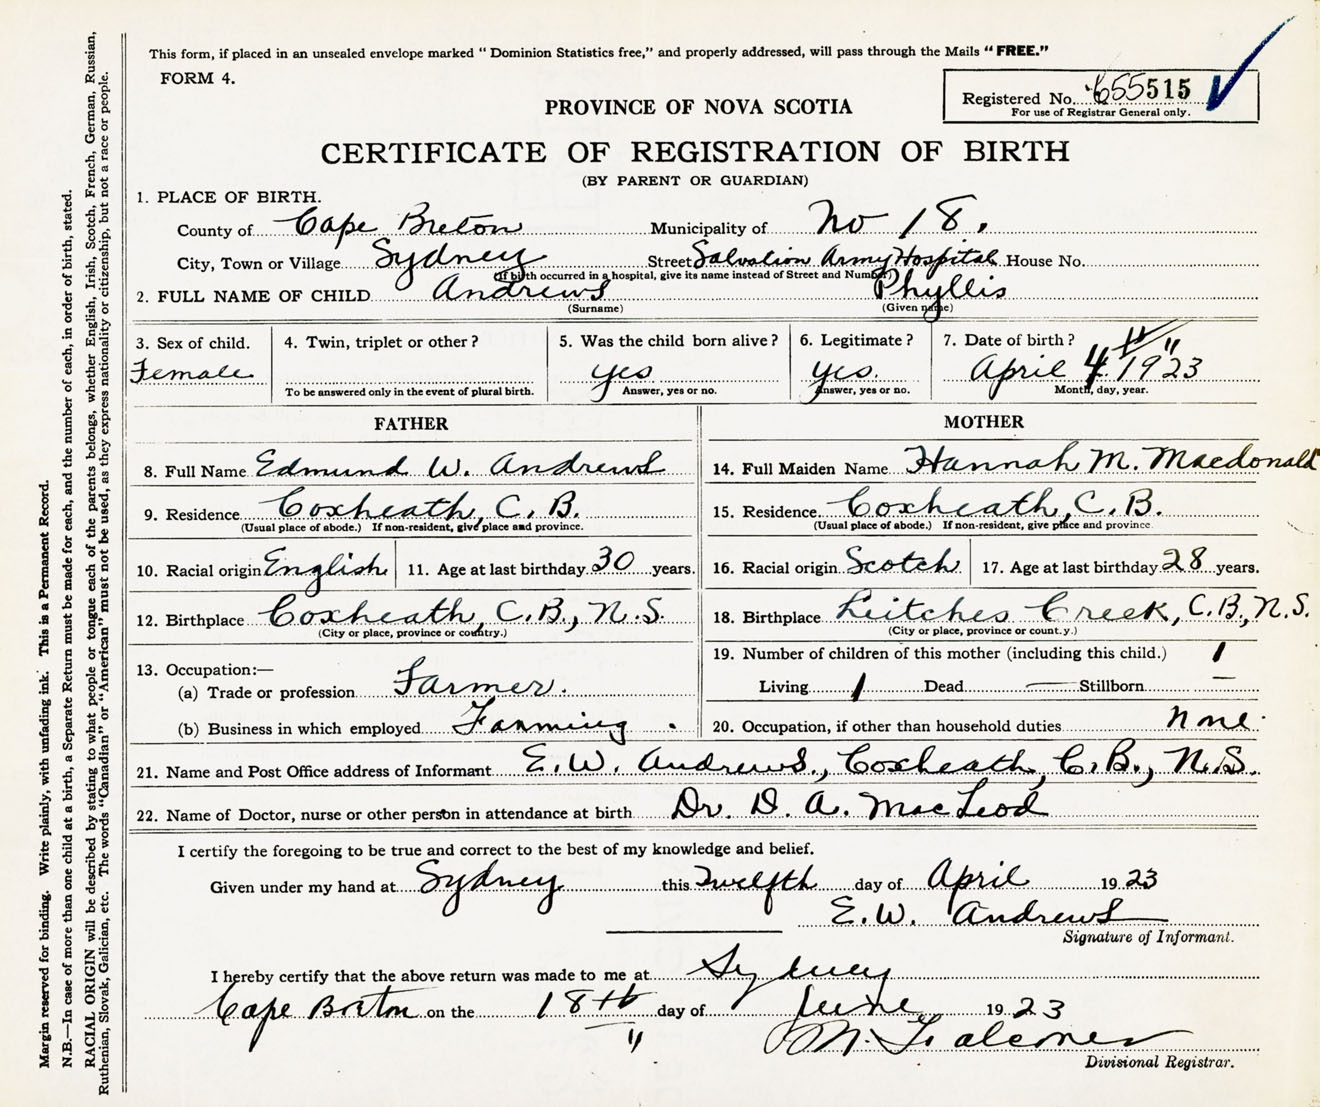 This form, if placed in an unsealed envelope marked " Dominion Statistics free," and properly addressed, will pass through the Mails " FREE."
FORM 4.
Registered No. 655515
For use of Registrar General only.
PROVINCE OF NOVA SCOTIA
CERTIFICATE OF REGISTRATION OF BIRTH
(BY PARENT OR GUARDIAN)
1. PLACE OF BIRTH.
County of Cape Breton Municipality of No 18.
City, Town or Village Sydney Street Salvation Army Hospital House No.
(If birth occurred in a hospital, give its name instead of Street and Number)
2. FULL NAME OF CHILD Andrews Phyllis
(Surname) (Given name)
3. Sex of child. 4. Twin, triplet or other ? 5. Was the child born alive ? 6. Legitimate ? 7. Date of birth ?
Female yes yes. April 4 1923
To be answered only in the event of plural birth. Answer, yes or no. Answer, yes or no. Month, day, year.
FATHER MOTHER
8. Full Name Edmund W. Andrews 14. Full Maiden Name Hannah M. Macdonald
9. Residence Coxheath, C. B. 15. Residence Coxheath, C. B.
(Usual place of abode.) If non-resident, give place and province. (Usual place of abode.) If non-resident, give place and province.
10. Racial origin English 11. Age at last birthday 30 years. 16. Racial origin Scotch 17. Age at last birthday 28 years.
12. Birthplace Coxheath, C.B., N.S. 18. Birthplace Leitches Creek, C.B., N.S.
(City or place, province or country.) (City or place, province or count.y.)
13. Occupation:— 19. Number of children of this mother (including this child.) 1
(a) Trade or profession Farmer. Living 1 Dead — Stillborn —
(b) Business in which employed Farming. 20. Occupation, if other than household duties none.
21. Name and Post Office address of Informant E. W. Andrews., Coxheath, C.B., N.S.
22. Name of Doctor, nurse or other person in attendance at birth Dr. D. A. MacLeod
I certify the foregoing to be true and correct to the best of my knowledge and belief.
Given under my hand at Sydney this Twelfth day of April 1923
E. W. Andrews
Signature of Informant.
I hereby certify that the above return was made to me at Sydney
Cape Breton on the 18th day of June 1923
M. Falconer
Divisional Registrar.
Margin reserved for binding. Write plainly, with unfading ink. This is a Permanent Record.
N.B.—In case of more than one child at a birth, a Separate Return must be made for each, and the number of each, in order of birth, stated.
RACIAL ORIGIN will be described by stating to what people or tongue each of the parents belongs, whether English, Irish, Scotch, French, German, Russian,
Ruthenian, Slovak, Galician, etc. The words "Canadian" or "American" must not be used, as they express nationality or citizenship, but not a race or people.